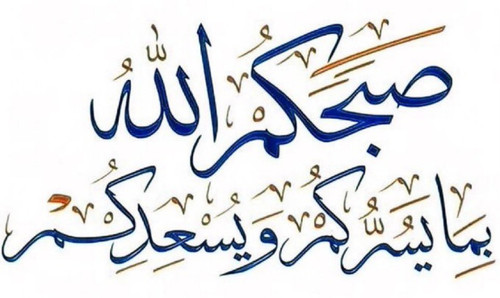 صبحكم الله
بما يسركم ويسعدكم